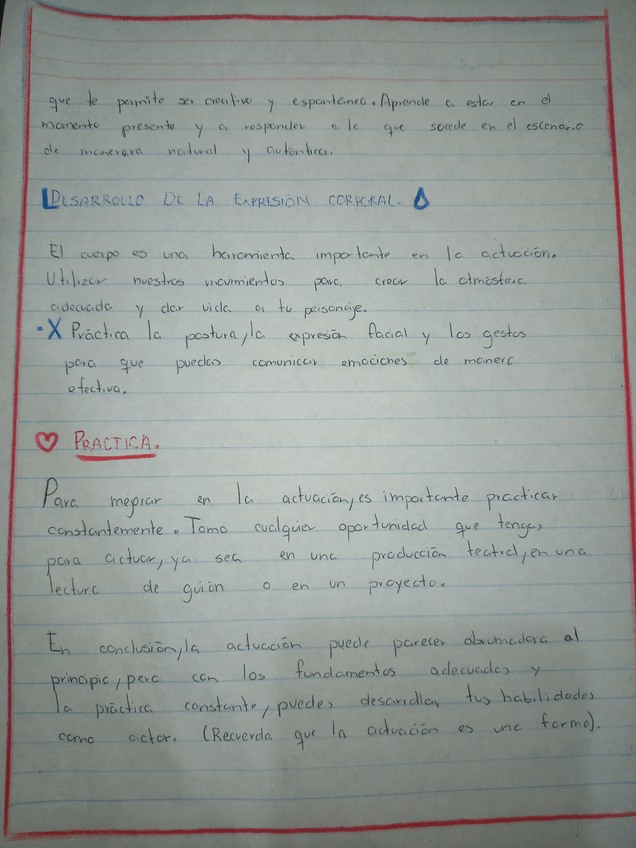 que te permite ser creativo y espontáneo. Aprende a estar en el
momento presente y a responder a lo que sucede en el escenario
de manerara natural y auténtica.
DESARROLLO DE LA EXPRESIÓN CORPORAL.
El cuerpo es una herramienta importante en la actuación.
Utilizar nuestros movimientos para crear la atmósfera
adecuada y dar vida a tu personaje.
• X Práctica la postura, la expresión facial y los gestos
para que puedas comunicar emociones de manera
efectiva.
PRACTICA.
Para meprar en la actuación, es importante practicar
constantemente. Toma cualquier oportunidad que tengas
para actuar, ya sea en una producción teatral, en una
lectura de guión o en un proyecto.
En conclusión, la actuación puede parecer abrumadora al
principio, pero con los fundamentos adecuados y
la práctica constante, puedes desarrollar tus habilidades
como actor. (Recuerda que la actuación es una forma).